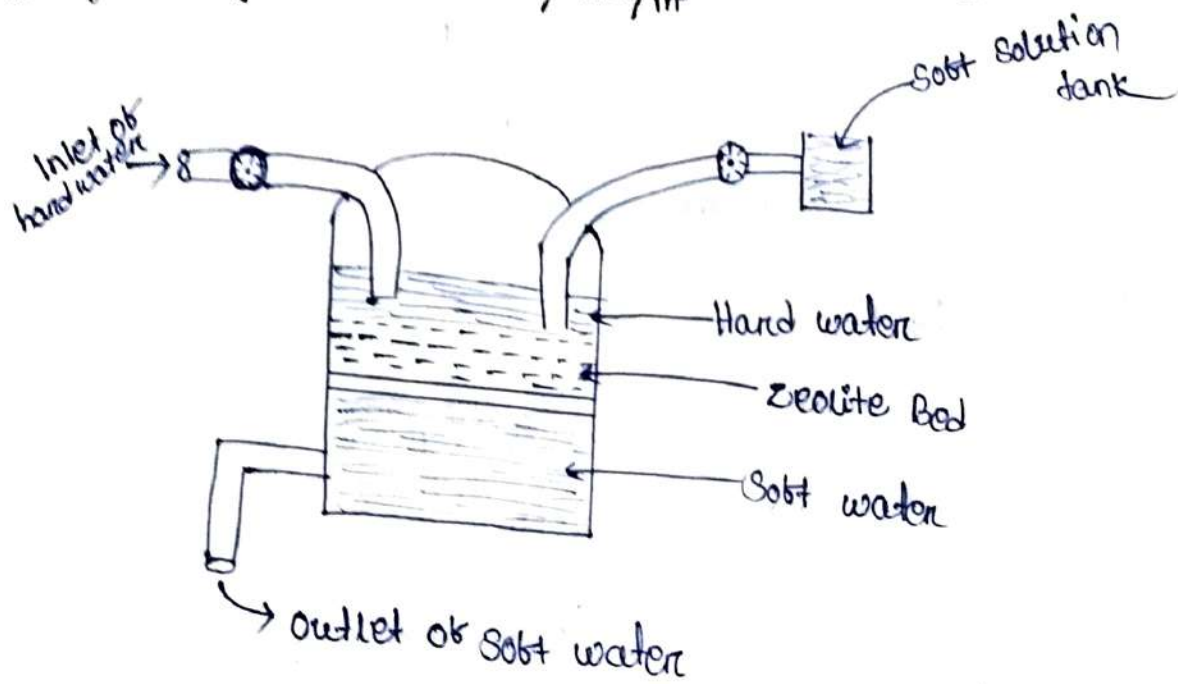 Soft Solution
tank
Inlet of
hard water
Hard water
Zeolite Bed
Soft water
Outlet of Soft water